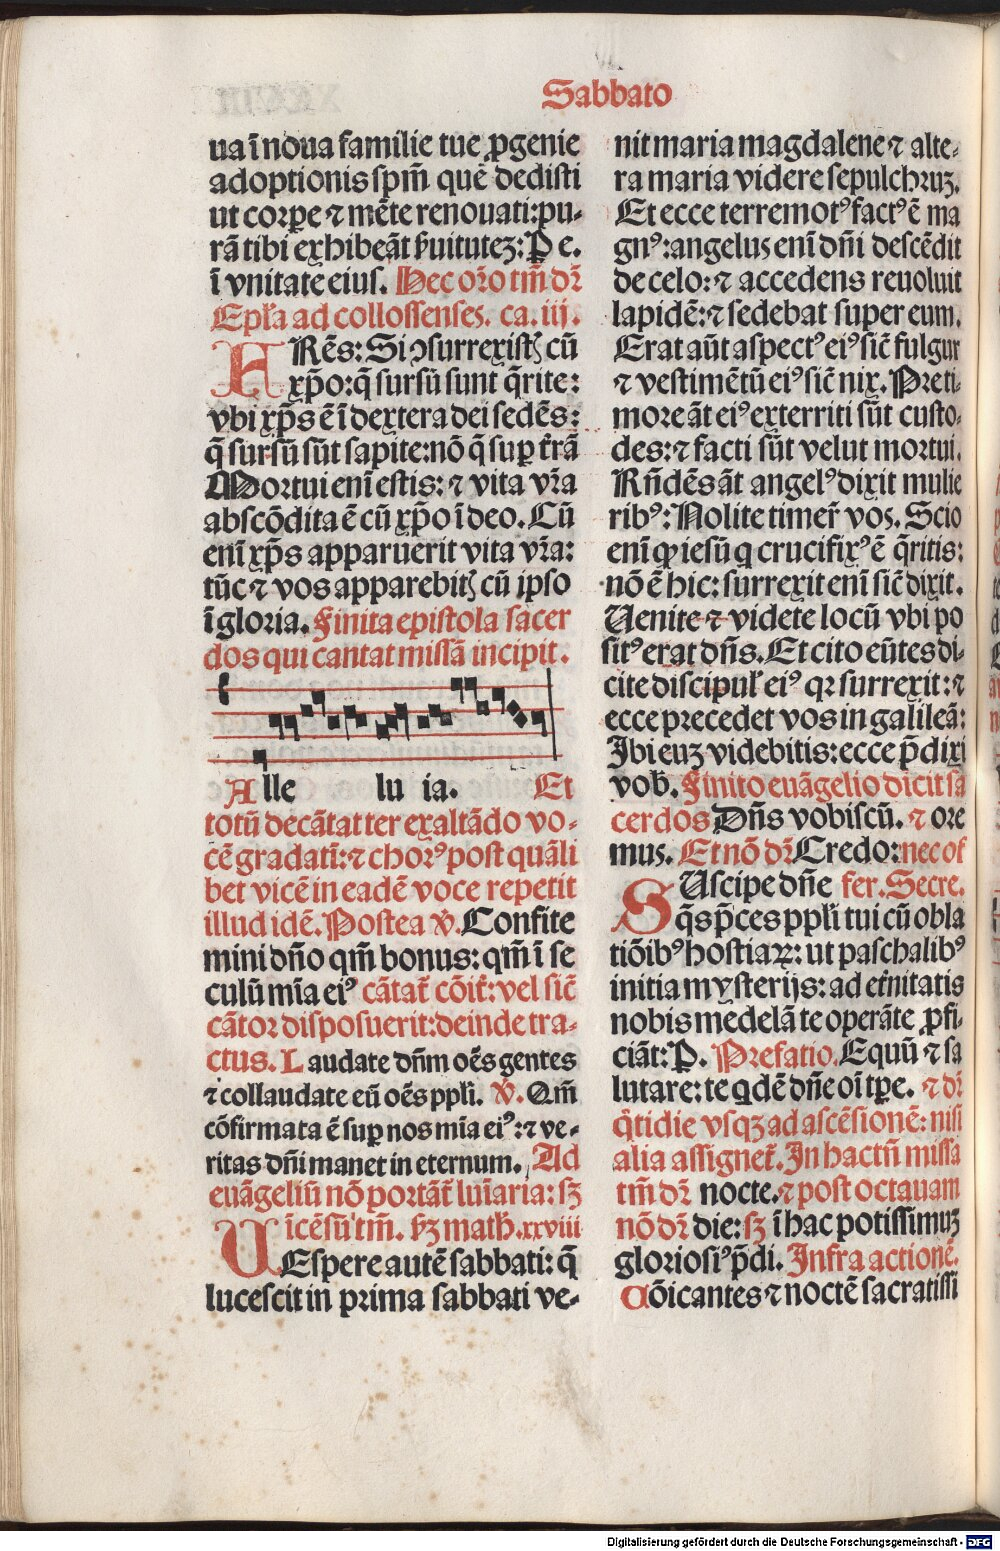 Sabbato
ua ī noua familie tue ꝓgenie
adoptionis spm̄ quē dedisti
ut corꝑe ⁊ mēte renouati: pu⸗
rā tibi exhibeāt ẜuituteꝫ: P e.
ī vnitate eius. Hec orō tm̄ dr̄
Epl̓a ad collossenses. ca. iij.
FRēs: Si ꝯsurrexistꝭ cū
xp̄o: q̄ sursū sunt q̄rite:
vbi xp̄s ē ī dextera dei sedēs:
q̄ sursū sūt sapite: nō q̄ suꝑ tr̄ā
Mortui enī estis: ⁊ vita vr̄a
abscōdita ē cū xp̄o ī deo. Cū
enī xp̄s apparuerit vita vr̄a:
tūc ⁊ vos apparebitꝭ cū ipso
ī gloria. Finita epistola sacer
dos qui cantat missā incipit.
Alle lu ia. Et
totū decātat ter exaltādo vo⸗
cē gradatī: ⁊ chorꝰ post quāli
bet vicē in eadē voce repetit
illud idē. Postea ℣. Confite
mini dn̄o qm̄ bonus: qm̄ ī se
culū mīa eiꝰ cātat̄ cōit̄: vel sic̄
cātor disposuerit: deinde tra⸗
ctus. Laudate dn̄m oēs gentes
⁊ collaudate eū oēs ppl̓i. ℣. Qm̄
cōfirmata ē suꝑ nos mīa eiꝰ: ⁊ ve⸗
ritas dn̄i manet in eternum. Ad
euāgeliū nō portāt̄ luīaria: sꝫ
īcēsū tm̄. ẜꝫ math̓. xxviii
UEspere autē sabbati: q̄
lucescit in prima sabbati ve⸗
nit maria magdalene ⁊ alte⸗
ra maria videre sepulchruꝫ.
Et ecce terremotꝰ factꝰ ē ma
gnꝰ: angelus enī dn̄i descēdit
de celo: ⁊ accedens reuoluit
lapidē: ⁊ sedebat super eum.
Erat aūt aspectꝰ eiꝰ sic̄ fulgur
⁊ vestimētū eiꝰ sic̄ nix. Pre ti⸗
more āt eiꝰ exterriti sūt custo⸗
des: ⁊ facti sūt velut mortui.
Rn̄dēs āt angelꝰ dixit mulie
ribꝰ: Nolite timer̄ vos. Scio
enī ꝙ iesū q crucifixꝰ ē q̄ritis:
nō ē hic: surrexit enī sic̄ dixit.
Uenite ⁊ videte locū vbi po
sitꝰ erat dn̄s. Et cito eūtes di⸗
cite discipul̓ eiꝰ qꝛ surrexit: ⁊
ecce precedet vos in galileā:
Ibi euꝫ videbitis: ecce p̄dixi
vob. Finito euāgelio dicit sa
cerdos Dn̄s vobiscū. ⁊ ore
mus. Et nō dr̄ Credo: nec of
SUscipe dn̄e fer. Secre.
q̄s p̄ces ppl̓i tui cū obla
tiōibꝰ hostiaꝝ: ut paschalibꝰ
initia mysterijs: ad et̓nitatis
nobis medelā te operāte ꝓfi⸗
ciāt: P. Prefatio. Equū ⁊ sa
lutare: te qdē dn̄e oī tꝑe. ⁊ dr̄
q̄tidie vsqꝫ ad ascēsionē: nisi
alia assignet̄. In hac tn̄ missa
tm̄ dr̄ nocte. ⁊ post octauam
nō dr̄ die: sꝫ ī hac potissimuꝫ
gloriosiꝰ p̄di. Infra actionē.
Cōicantes ⁊ noctē sacratissi
Digitalisierung gefördert durch die Deutsche Forschungsgemeinschaft - DFG